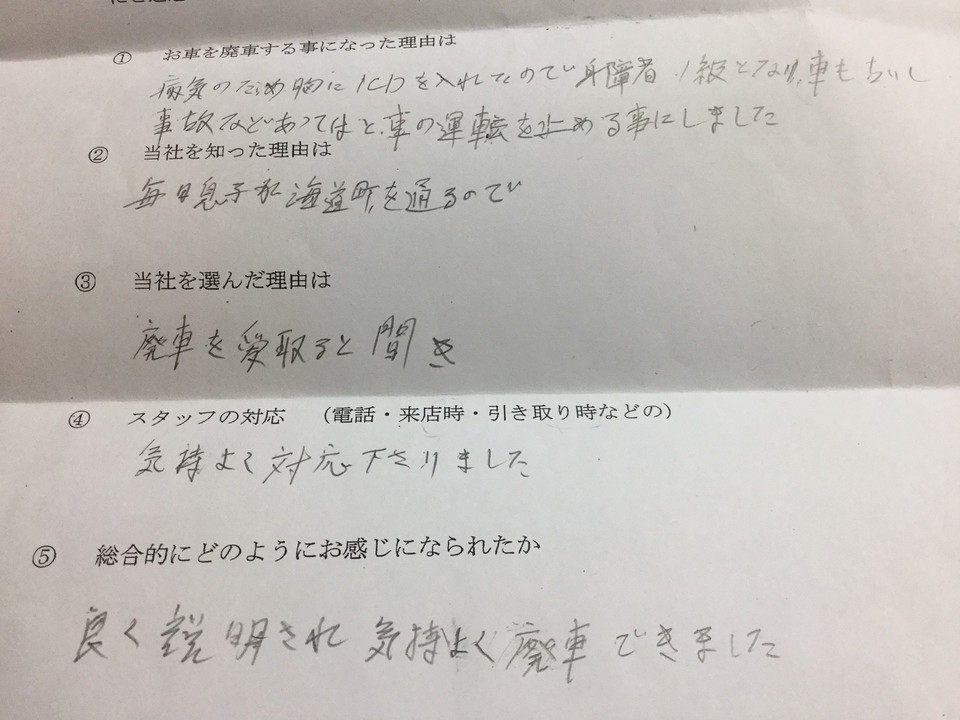 ① お車を廃車する事になった理由は
病気のため胸にICDを入れたので身障者1級となり、車も古いし
事故などあってはと、車の運転を止める事にしました
② 当社を知った理由は
毎日息子が海道町を通るので
③ 当社を選んだ理由は
廃車を受取ると聞き
④ スタッフの対応 (電話・来店時・引き取り時などの)
気持よく対応下さりました
⑤ 総合的にどのようにお感じになられたか
良く説明され気持よく廃車できました